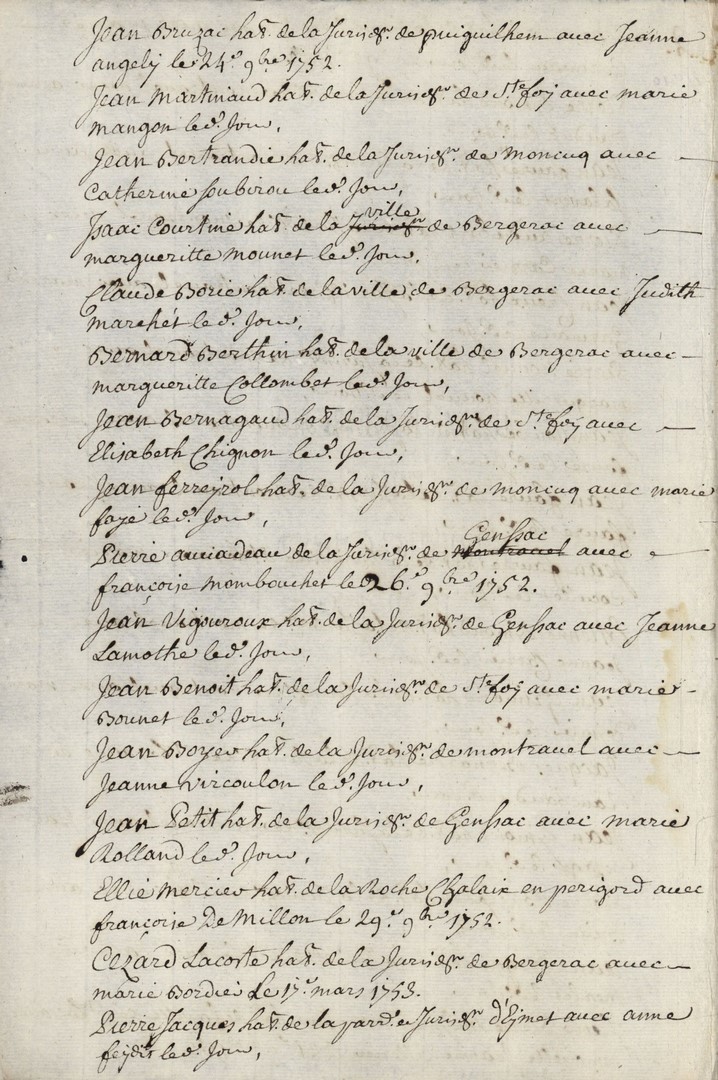 Jean Bruzac hat. de la Jurisd.on de puiguilhem avec Jeanne
angely le 24.e 9bre 1752.
Jean Martiniaud hat. de la Jurisd.on de S.te foy avec marie
mangon le d. Jour,
Jean Bertrandie hat. de la Jurisd.on de moncuq avec
Catherine Soubirou le d. Jour,
Isaac Courtine hat. de la Jurisd.on ville de Bergerac avec
margueritte mounet le d. Jour,
Claude Borie hat. de la ville de Bergerac avec Judith
Marchét le d. Jour,
Bernard Berthin hat. de la ville de Bergerac avec
margueritte Collombet le d. Jour,
Jean Bernagaud hat. de la Jurisd.on de S.te foy avec
Elisabeth Chignon le d. Jour,
Jean ferreyrol hat. de la Jurisd.on de moncuq avec marie
faye le d. Jour,
Pierre de la Jurisd.on de Montravel Genssac avec
françoise Mombouchet le 26.e 9bre 1752.
Jean Vigouroux hat. de la Jurisd.on de Genssac avec Jeanne
Lamothe le d. Jour,
Jean Benoit hat. de la Jurisd.on de S.te foy avec marie
Bounet le d. Jour,
Jean Boyer hat. de la Jurisd.on de montravel avec
Jeanne vircoulon le d. Jour,
Jean Petit hat. de la Jurisd.on de Genssac avec marie
Rolland le d. Jour,
Ellie Mercier hat. de la Roche Chalaix en perigord avec
françoise De Millon le 29.e 9bre 1752.
Cezard Lacoste hat. de la Jurisd.on de Bergerac avec
marie Bordier Le 17.e mars 1753.
Pierre Jacques hat. de la Jurisd.on d'Eymet avec anne
le d. Jour,